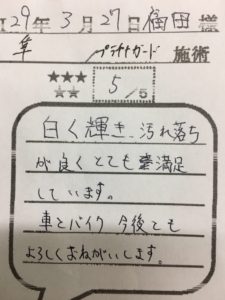 29年3月27日 福田 様
車 プラチナガード 施術
★★★
★★
5/5
白く輝き、汚れ落ち
が良くとても満足
しています。
車とバイク 今後とも
よろしくおねがいします。